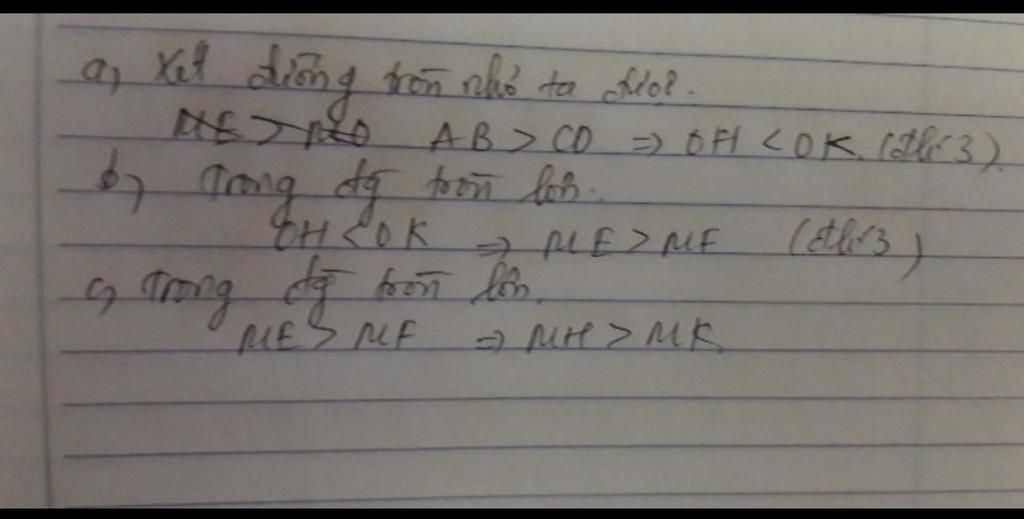 a, Xét đường tròn nhỏ ta được.
AB > CD => OH < OK. (đlí 3).
b, Trong đg tròn lớn.
OH < OK => ME > MF (đlí 3)
c, Trong đg tròn lớn.
ME > MF => MH > MK